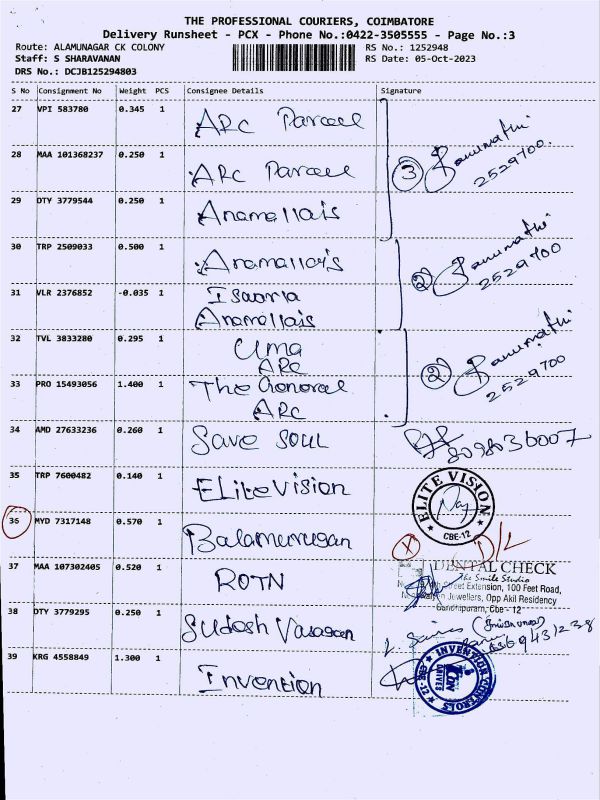 THE PROFESSIONAL COURIERS, COIMBATORE
Delivery Runsheet - PCX - Phone No.:0422-3505555 - Page No.:3
Route: ALAMUNAGAR CK COLONY RS No.: 1252948
Staff: S SHARAVANAN RS Date: 05-Oct-2023
DRS No.: DCJB125294803
S No Consignment No Weight PCS Consignee Details Signature
27 VPI 583780 0.345 1 ARC Parcel
28 MAA 101368237 0.250 1 ARC Parcel ③ Banumathi 2529700.
29 DTY 3779544 0.250 1 Anamallais
30 TRP 2509033 0.500 1 Anamallais ② Banumathi 2529700
31 VLR 2376852 -0.035 1 Isaoria
Anamallais
32 TVL 3833280 0.295 1 Uma
ARC
33 PRO 15493056 1.400 1 The General ② Banumathi 2529700
ARC
34 AMD 27633236 0.260 1 Save SOUL 8098036007
35 TRP 7600482 0.140 1 ELite Vision
ELITE VISION
CBE-12
36 MYD 7317148 0.570 1 Balamurugan X D/L
37 MAA 107302405 0.520 1 ROTN
DENTAL CHECK
The Smile Studio
Street Extension, 100 Feet Road,
Jewellers, Opp Akil Residency
Gandhipuram, Cbe - 12
38 DTY 3779295 0.250 1 Sudesh Vasagan
39 KRG 4558849 1.300 1 Invention
INVENTION CONTROLS
DRIVES
CBE-12